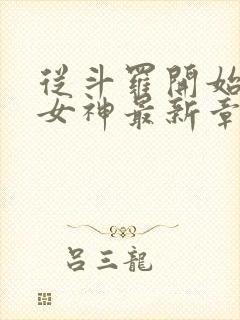 從斗羅開始
女神最新章
吕三龍